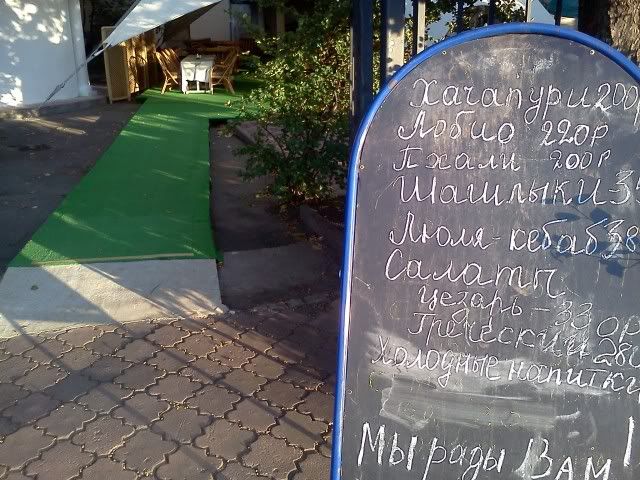 Хачапури 200р
Лобио 220р
Пхали 200р
Шашлыки-3
Люля-кебаб 38
Салаты
Цезарь-330р
Греческий 280
Холодные напитки
Мы рады Вам!